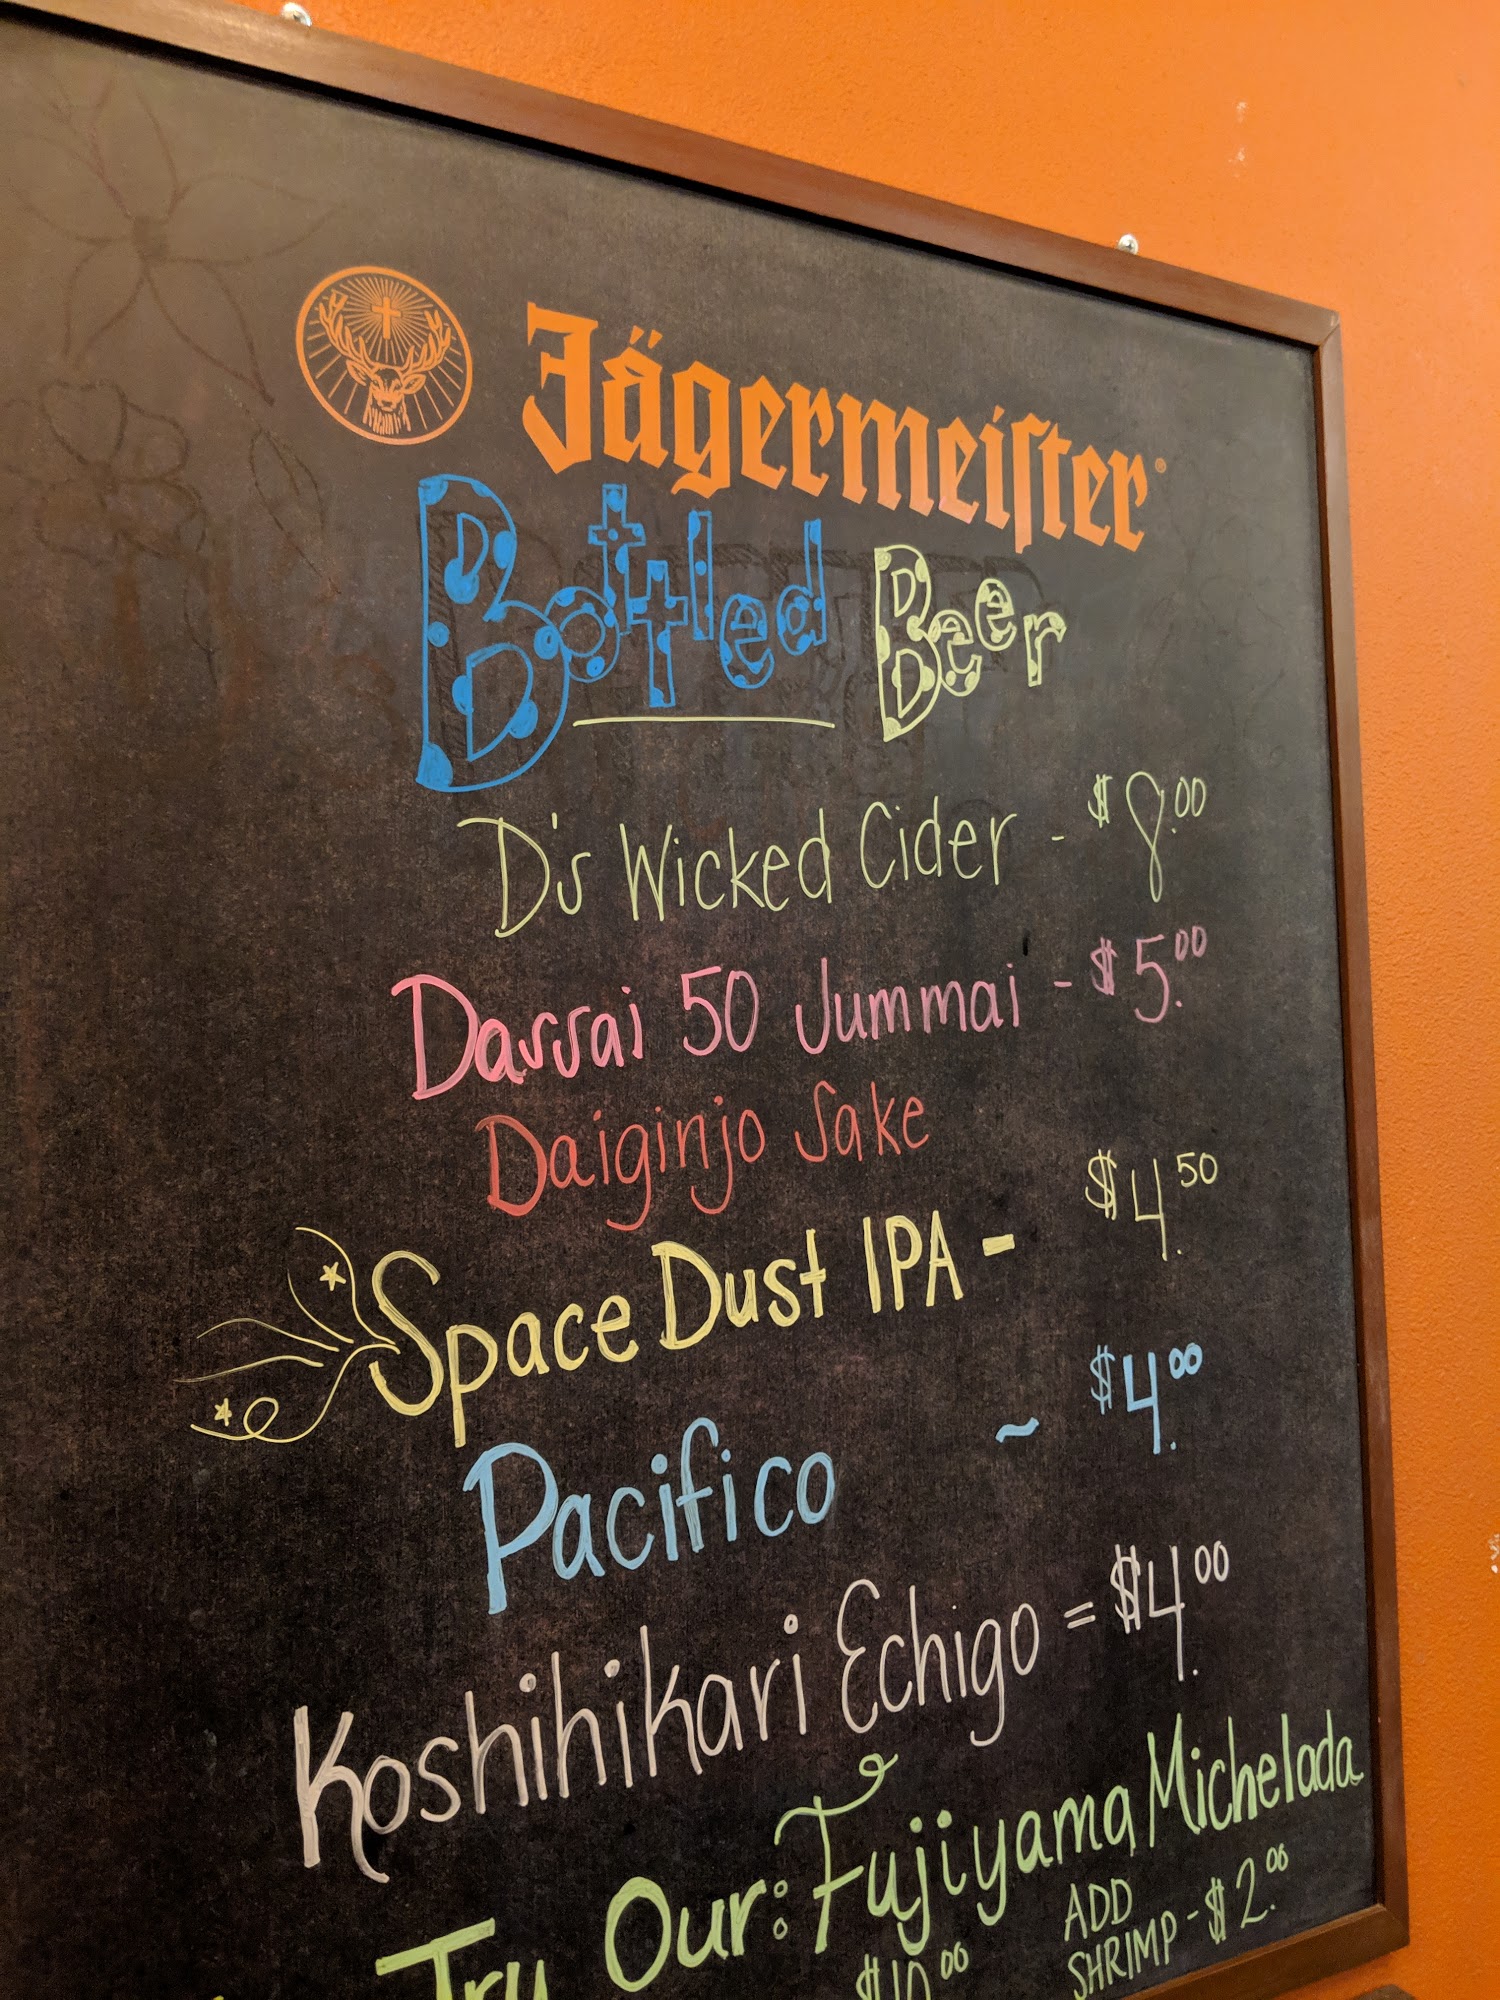 Jägermeister®
Bottled Beer
D's Wicked Cider - $8.00
Dassai 50 Jummai - $5.00
Daiginjo Sake
Space Dust IPA - $4.50
Pacifico ~ $4.00
Koshihikari Echigo = $4.00
Try Our: Fujiyama Michelada
$10.00 ADD
SHRIMP - $2.00